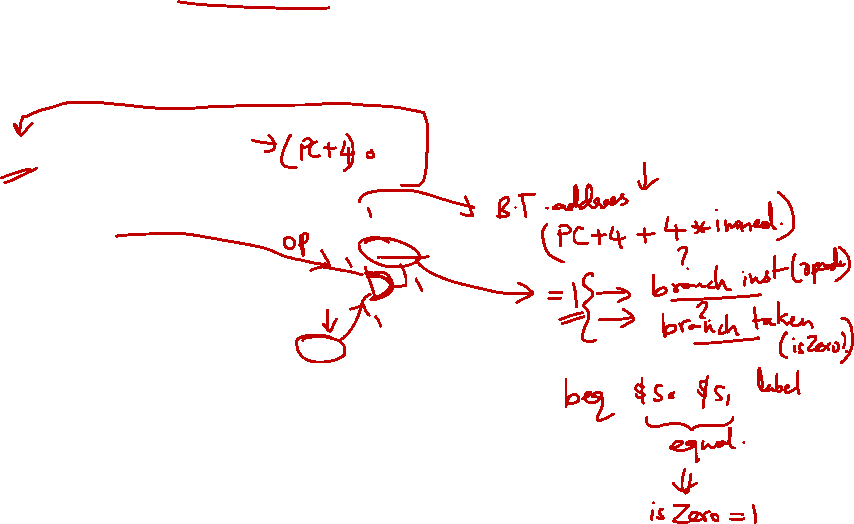 →(PC+4).
B.T. address
(PC+4 + 4*immed.)
OP
1
1
1
1
=1
?
branch inst (opcode)
?
branch taken
(isZero)
beq $s0 $s1 label
equal.
isZero = 1